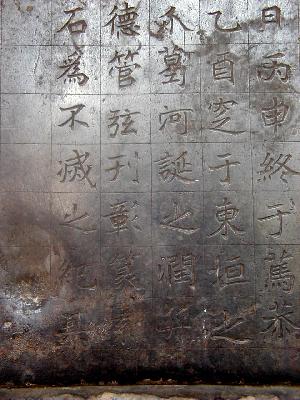 日丙申終于篤恭
乙酉窆于東垣之
瓜葛河誕之潤并
德管弦刊彰篆素
石爲不滅之紀其